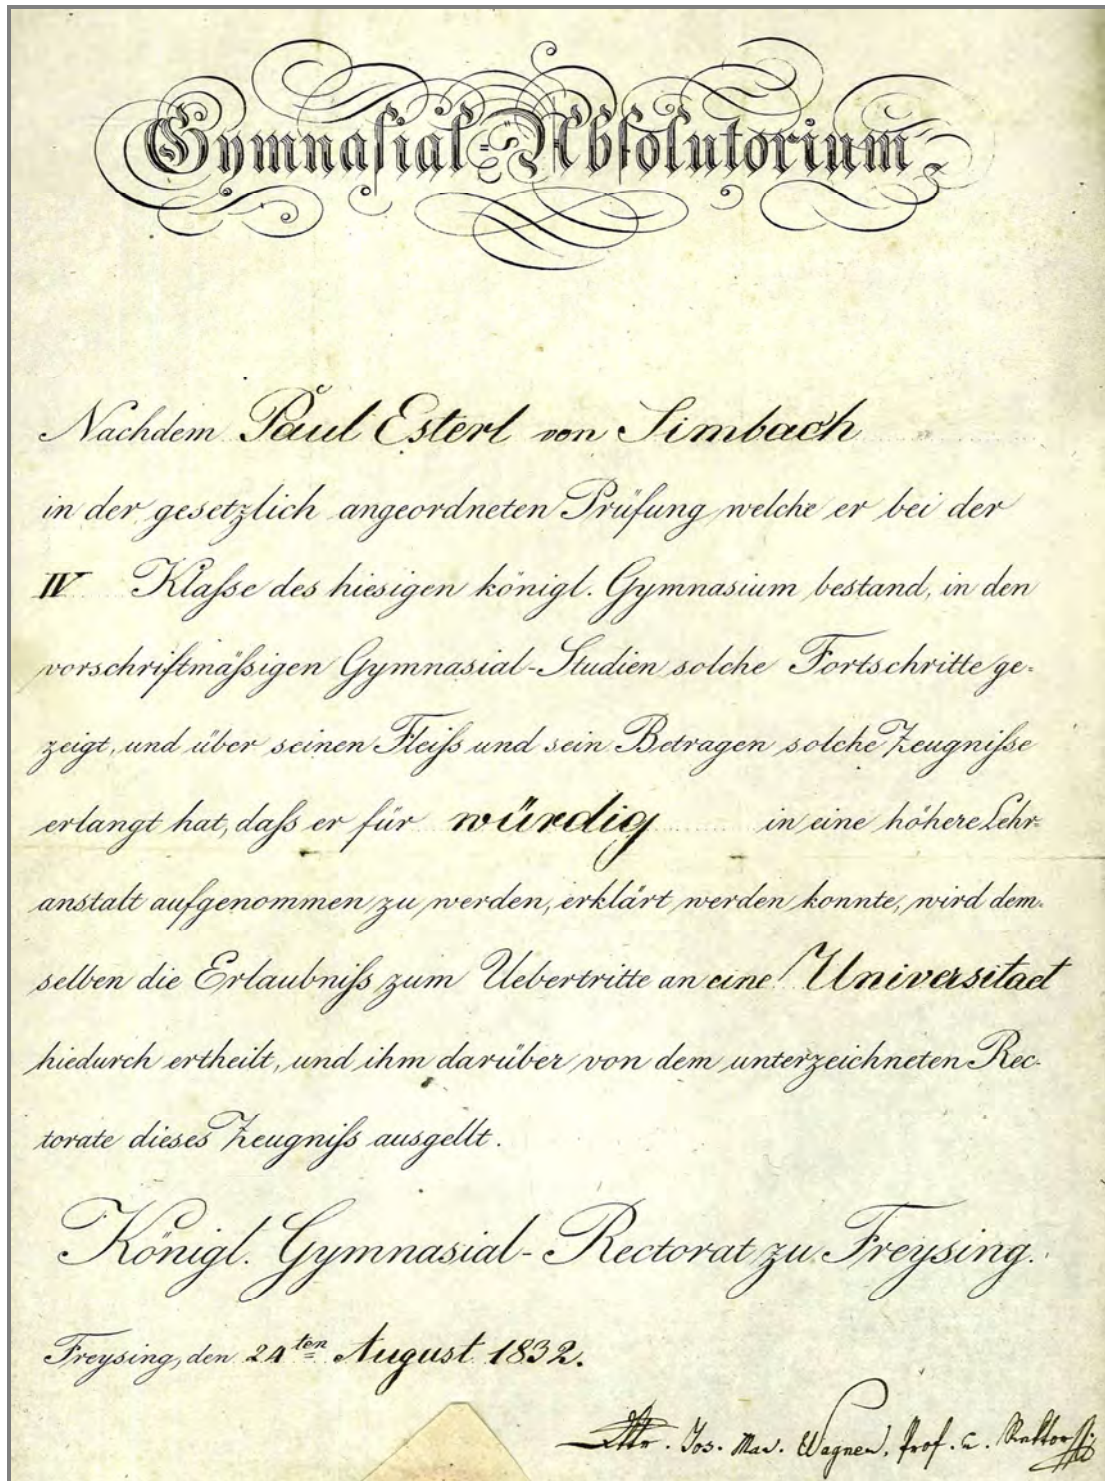 Gymnasial-Absolutorium.
Nachdem Paul Esterl von Simbach
in der gesetzlich angeordneten Prüfung welche er bei der
IV Klaſse des hiesigen königl. Gymnasium bestand, in den
vorschriftmäſsigen Gymnasial-Studien solche Fortschritte ge-
zeigt, und über seinen Fleiſs und sein Betragen solche Zeugniſse
erlangt hat, daſs er für würdig in eine höhere Lehr-
anstalt aufgenommen zu werden, erklärt werden konnte, wird dem-
selben die Erlaubniſs zum Uebertritte an eine Universitaet
hiedurch ertheilt, und ihm darüber von dem unterzeichneten Rec-
torate dieses Zeugniſs ausgellt.
Königl. Gymnasial-Rectorat zu Freysing.
Freysing, den 24ten August 1832.
Jos. Mar. Wagner, Prof. u. Rektor